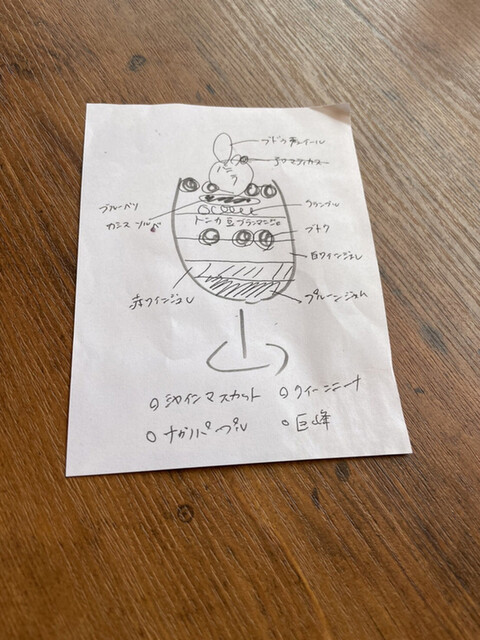 ブドウ
バニラ
ブルーベリ
カシス ソルベ
クランブル
トンカ豆ブランマンジェ
ブドウ
白ワインジュレ
赤ワインジュレ
プルーンジャム
○シャインマスカット
○クイーンニーナ
○ナガノパープル
○巨峰